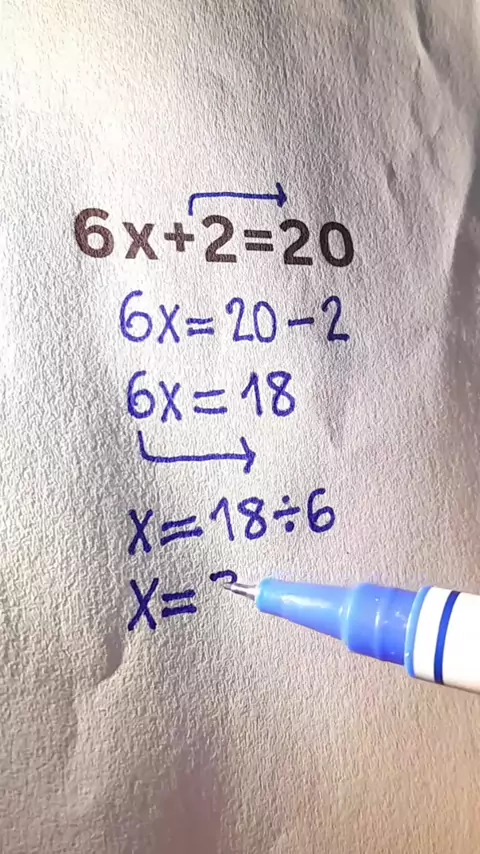 6x+2=20
6x=20-2
6x=18
x=18÷6
x=